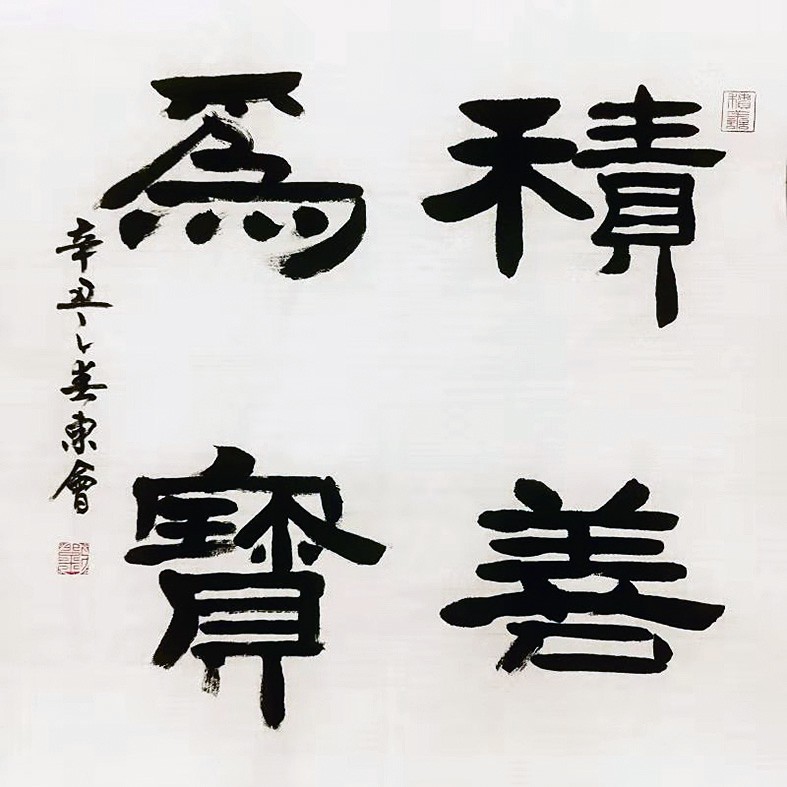 積善
為寶
辛丑之春東會